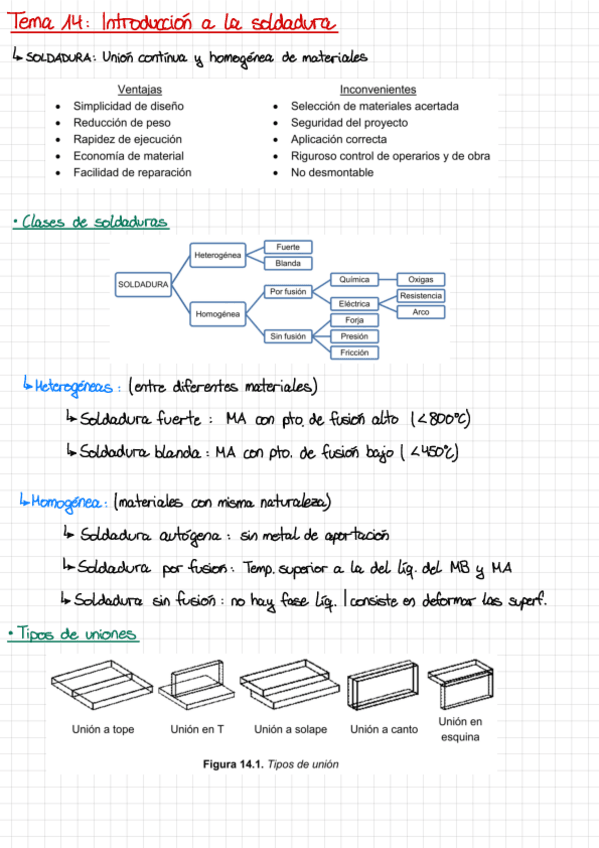 Tema 14: Introducción a la soldadura
↳ SOLDADURA: Unión contínua y homogénea de materiales
Ventajas
• Simplicidad de diseño
• Reducción de peso
• Rapidez de ejecución
• Economía de material
• Facilidad de reparación
Inconvenientes
• Selección de materiales acertada
• Seguridad del proyecto
• Aplicación correcta
• Riguroso control de operarios y de obra
• No desmontable
• Clases de soldaduras
SOLDADURA
Heterogénea
Fuerte
Blanda
Homogénea
Por fusión
Química
Oxigas
Eléctrica
Resistencia
Arco
Sin fusión
Forja
Presión
Fricción
↳ Heterogéneas: (entre diferentes materiales)
↳ Soldadura fuerte: MA con pto. de fusión alto (<800ºC)
↳ Soldadura blanda: MA con pto. de fusión bajo (<450ºC)
↳ Homogénea: (materiales con misma naturaleza)
↳ Soldadura autógena: sin metal de aportación
↳ Soldadura por fusion: Temp. superior a la del líq. del MB y MA
↳ Soldadura sin fusión: no hay fase líq. | consiste en deformar las superf.
• Tipos de uniones
Unión a tope
Unión en T
Unión a solape
Unión a canto
Unión en
esquina
Figura 14.1. Tipos de unión